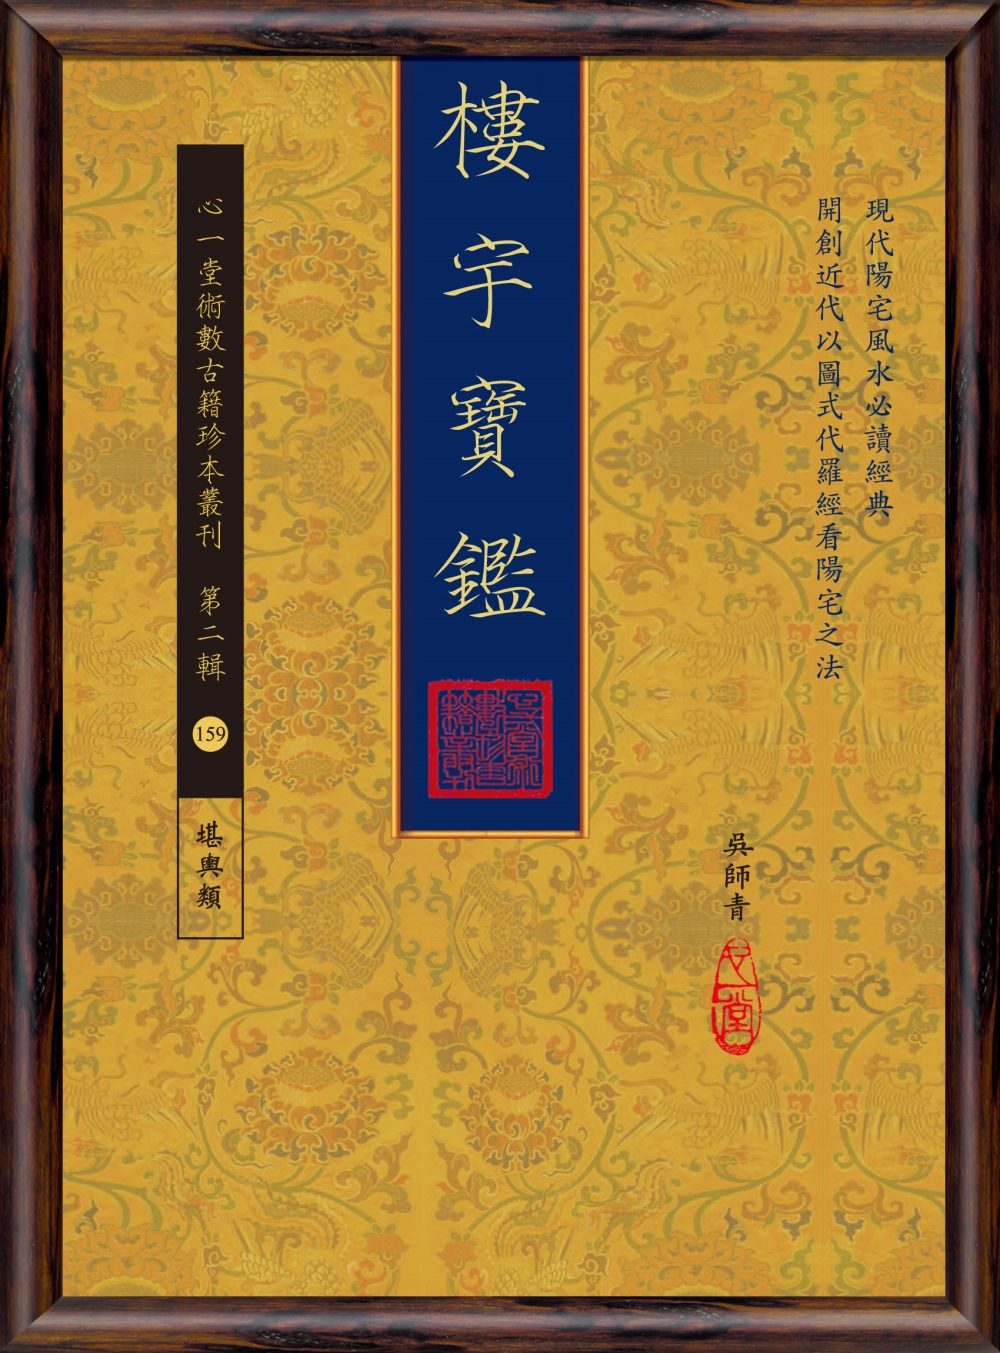 現代陽宅風水必讀經典
開創近代以圖式代羅經看陽宅之法
吳師青
樓宇寶鑑
心一堂術數古籍珍本叢刊 第二輯
159
堪輿類